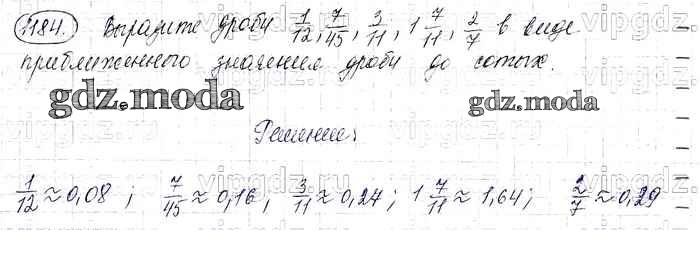 1184. Выразите дроби 1/12, 7/45, 3/11, 1 7/11, 2/7 в виде
приближенного значения дроби до сотых.
gdz.moda
gdz.moda
Решение:
1/12 ≈ 0,08 ; 7/45 ≈ 0,16, 3/11 ≈ 0,27; 1 7/11 ≈ 1,64; 2/7 ≈ 0,29